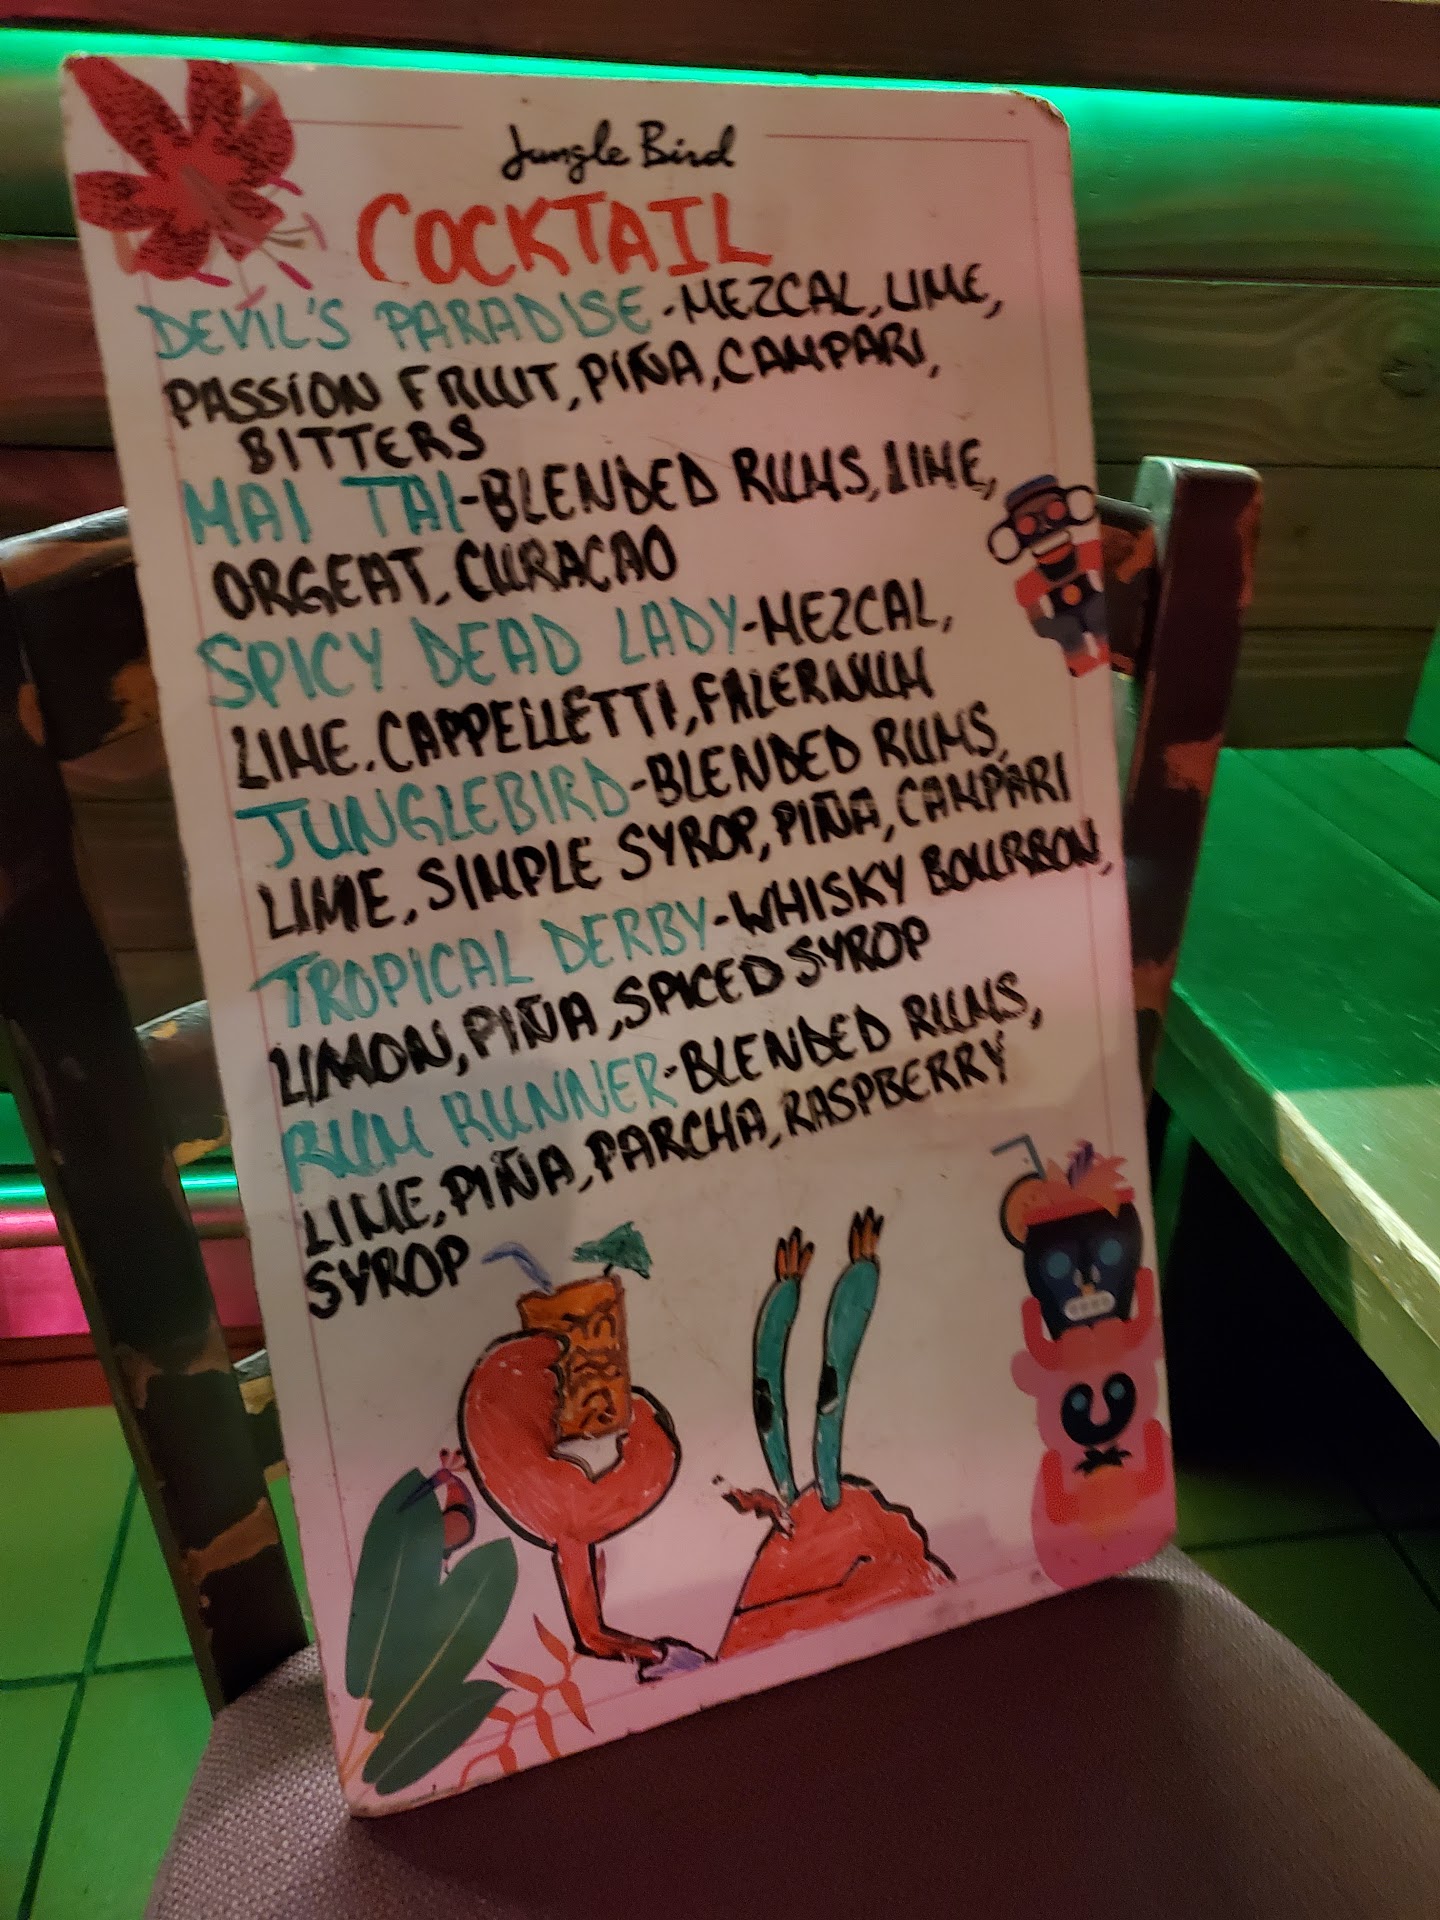 Jungle Bird
COCKTAIL
DEVIL'S PARADISE-MEZCAL, LIME,
PASSION FRUIT, PIÑA, CAMPARI,
BITTERS
MAI TAI-BLENDED RUMS, LIME,
ORGEAT, CURACAO
SPICY DEAD LADY-MEZCAL,
LIME, CAPPELLETTI, FALERNUM
JUNGLEBIRD-BLENDED RUMS,
LIME, SIMPLE SYROP, PIÑA, CAMPARI
TROPICAL DERBY-WHISKY BOURBON,
LIMON, PIÑA, SPICED SYROP
RUM RUNNER-BLENDED RUMS,
LIME, PIÑA, PARCHA, RASPBERRY
SYROP